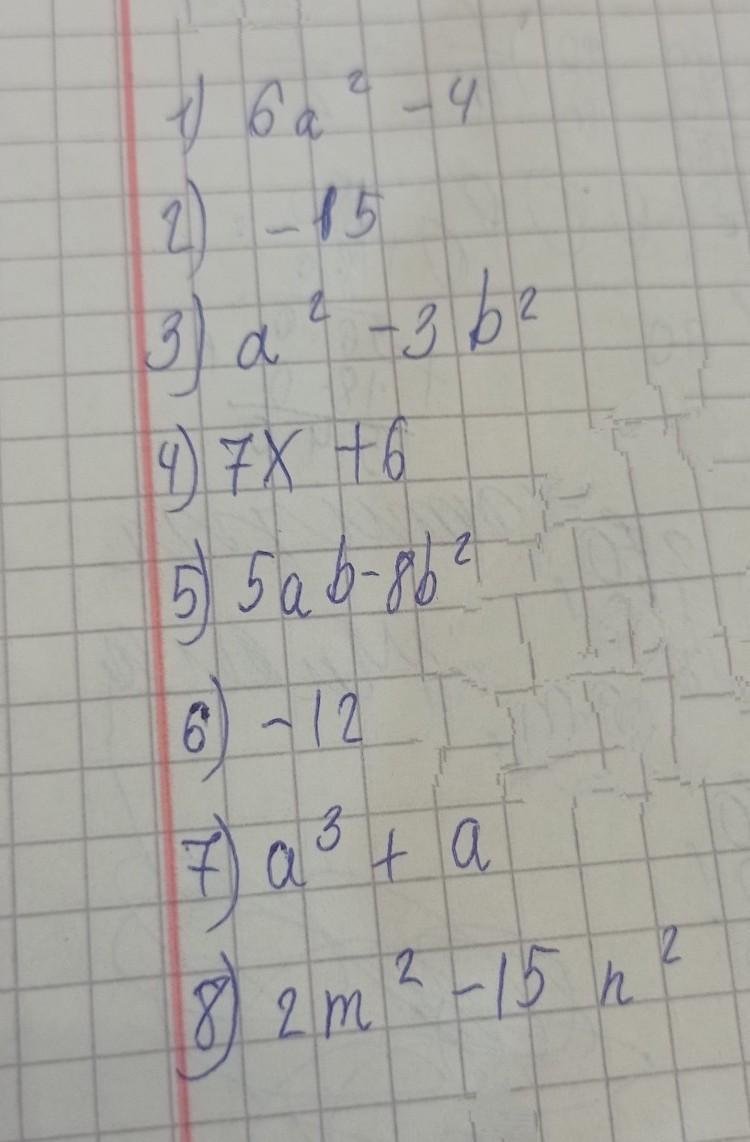 1) 6a² - 4
2) - 15
3) a² - 3b²
4) 7x + 6
5) 5ab - 8b²
6) - 12
7) a³ + a
8) 2m² - 15n²